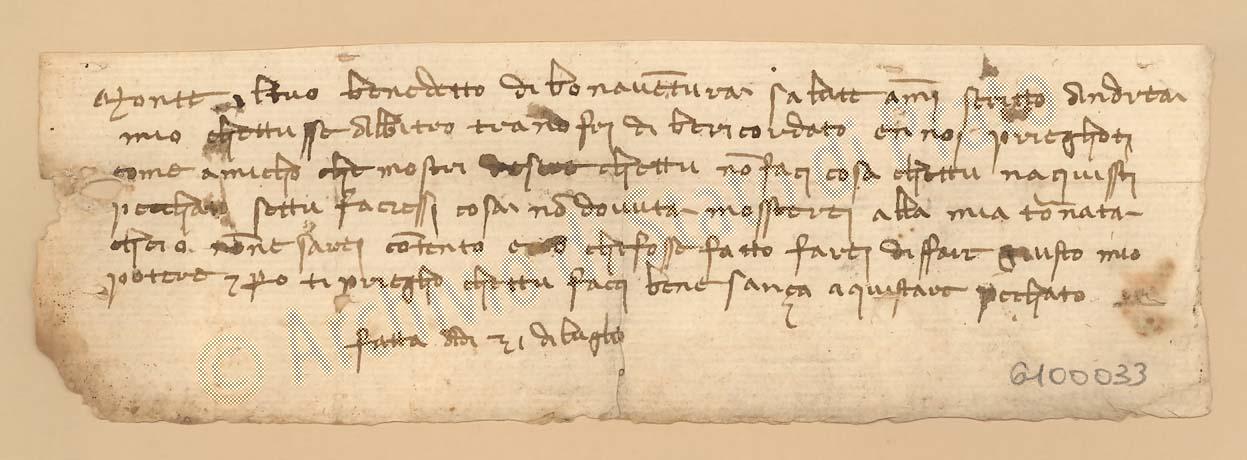 Monte il tuo benedetto di bonaventura salute ami scritto Andrea
mio chettusse Albitro tra nofri di bericordato et noi prieghoti
come amicho che mostri chettu no faci cosa chettu naquisti
pechato settu facressi cosa no dovuta mosterei alla mia tornata
chero none sarei contento che fosse fatto farei disfare giusto mio
potere e po ti priegho chettu facci bene sança aquistare pechato
fatta adi 21 di luglo
© Archivio di Prato
6100033